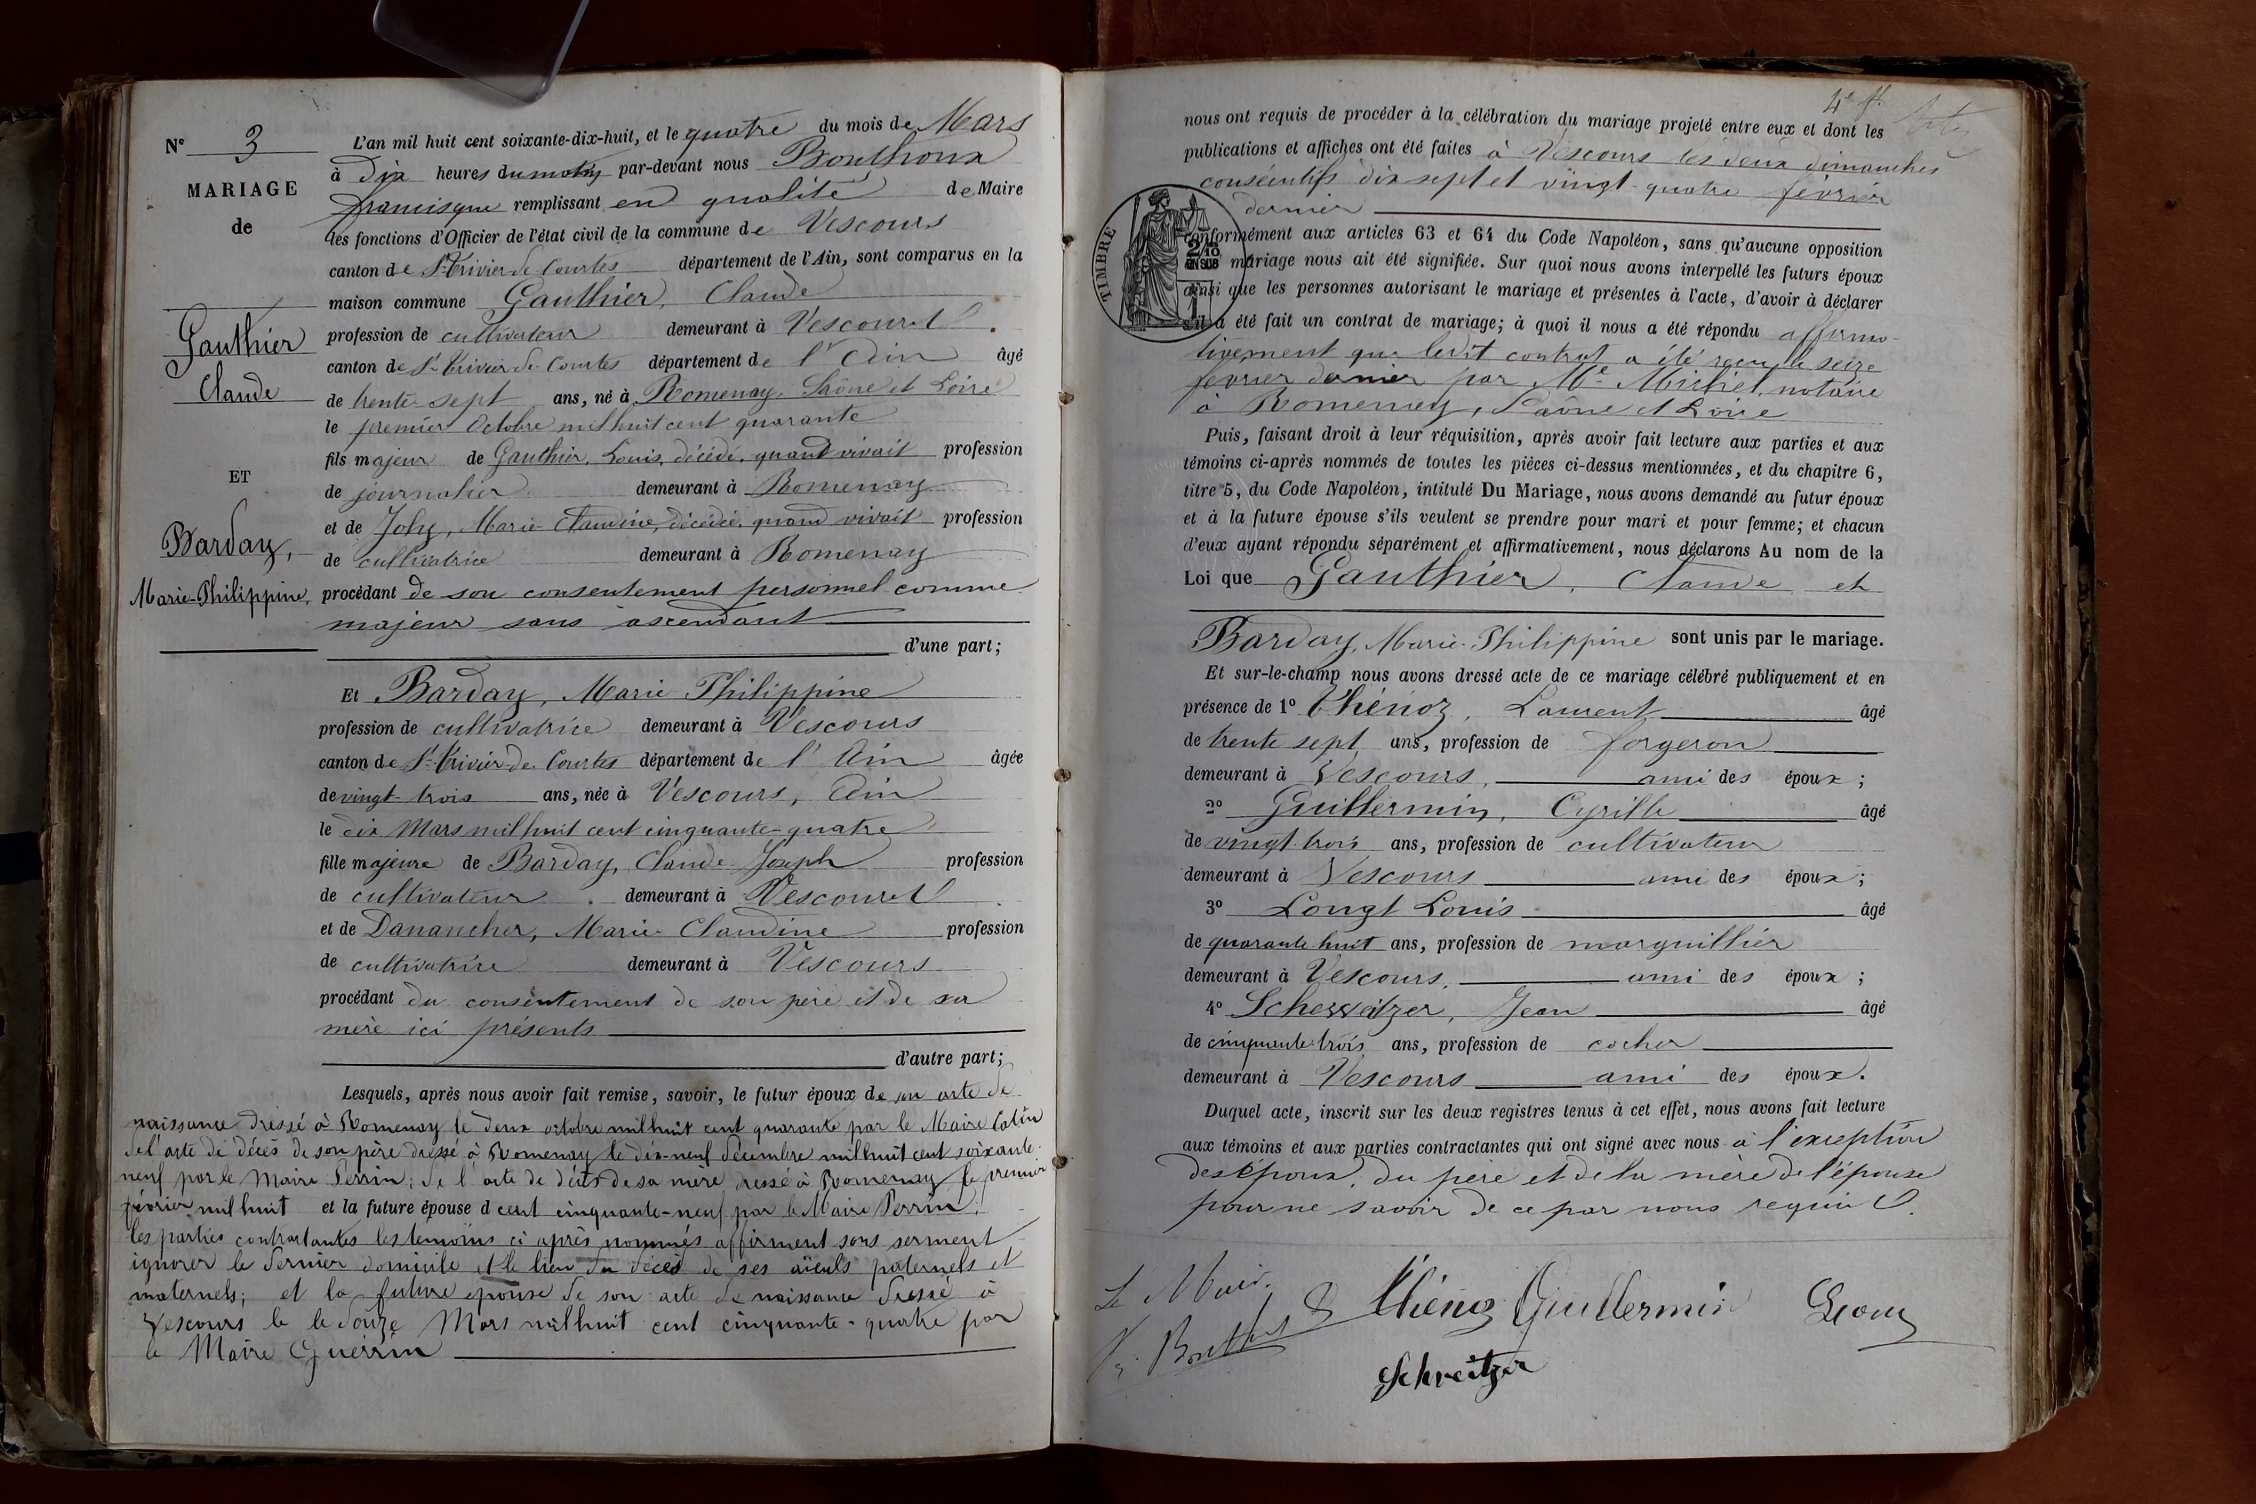 N° 3
MARIAGE
de
Gauthier
Claude
ET
Barday,
Marie-Philippine,
L'an mil huit cent soixante-dix-huit, et le quatre du mois de Mars
à dix heures du matin par-devant nous Bouthoux
francisque remplissant en qualité de Maire
les fonctions d'Officier de l'état civil de la commune de Vescours
canton de St Trivier de Courtes département de l'Ain, sont comparus en la
maison commune Gauthier, Claude
profession de cultivateur demeurant à Vescours
canton de St Trivier de Courtes département de l'Ain âgé
de trente-sept ans, né à Romenay, Saône et Loire
le premier Octobre mil huit cent quarante
fils majeur de Gauthier, Louis, décédé, quand vivait profession
de journalier demeurant à Romenay
et de Joly, Marie Claudine, décédée, quand vivait profession
de cultivatrice demeurant à Romenay
procédant de son consentement personnel comme
majeur sans ascendant
d'une part;
Et Barday, Marie Philippine
profession de cultivatrice demeurant à Vescours
canton de St Trivier de Courtes département de l'Ain âgée
de vingt-trois ans, née à Vescours, Ain
le dix Mars mil huit cent cinquante-quatre
fille majeure de Barday, Claude Joseph profession
de cultivateur demeurant à Vescours
et de Danancher, Marie Claudine profession
de cultivatrice demeurant à Vescours
procédant du consentement de son père et de sa
mère ici présents
d'autre part;
Lesquels, après nous avoir fait remise, savoir, le futur époux de son acte de
naissance dressé à Romenay le deux octobre mil huit cent quarante par le Maire Catin
de l'acte de décès de son père dressé à Romenay le dix-neuf décembre mil huit cent soixante
neuf par le Maire Perrin; de l'acte de décès de sa mère dressé à Romenay le premier
février mil huit et la future épouse d cent cinquante-neuf par le Maire Perrin;
les parties contractantes les temoins ci après nommés affirment sous serment
ignorer le dernier domicile et le lieu du décès de ses aïeuls paternels et
maternels; et la future epouse de son acte de naissance dressé à
Vescours le le douze Mars mil huit cent cinquante-quatre par
le Maire Guerrin
4e f.
nous ont requis de procéder à la célébration du mariage projeté entre eux et dont les
publications et affiches ont été faites à Vescours les deux dimanches
consécutifs dix sept et vingt-quatre février
dernier
TIMBRE
2/10 EN SUS
conformément aux articles 63 et 64 du Code Napoléon, sans qu'aucune opposition
mariage nous ait été signifiée. Sur quoi nous avons interpellé les futurs époux
ainsi que les personnes autorisant le mariage et présentes à l'acte, d'avoir à déclarer
s'il a été fait un contrat de mariage; à quoi il nous a été répondu affirma-
tivement que ledit contrat a été reçu le seize
fevrier dernier par Me Michel, notaire
à Romenay, Saône et Loire
Puis, faisant droit à leur réquisition, après avoir fait lecture aux parties et aux
témoins ci-après nommés de toutes les pièces ci-dessus mentionnées, et du chapitre 6,
titre 5, du Code Napoléon, intitulé Du Mariage, nous avons demandé au futur époux
et à la future épouse s'ils veulent se prendre pour mari et pour femme; et chacun
d'eux ayant répondu séparément et affirmativement, nous déclarons Au nom de la
Loi que Gauthier, Claude et
Barday, Marie-Philippine sont unis par le mariage.
Et sur-le-champ nous avons dressé acte de ce mariage célébré publiquement et en
présence de 1° Thénoz, Laurent âgé
de trente sept ans, profession de forgeron
demeurant à Vescours, ami des époux;
2° Guillermin, Cyrille âgé
de vingt-trois ans, profession de cultivateur
demeurant à Vescours ami des époux;
3° Longt Louis âgé
de quarante huit ans, profession de marguillier
demeurant à Vescours, ami des époux;
4° Scheweitzer, Jean âgé
de cinquante-trois ans, profession de cocher
demeurant à Vescours ami des époux.
Duquel acte, inscrit sur les deux registres tenus à cet effet, nous avons fait lecture
aux témoins et aux parties contractantes qui ont signé avec nous à l'exception
des époux, du père et de la mère de l'épouse
pour ne savoir de ce par nous requis.
Le Maire,
Thénoz Guillermin
Schweitzer